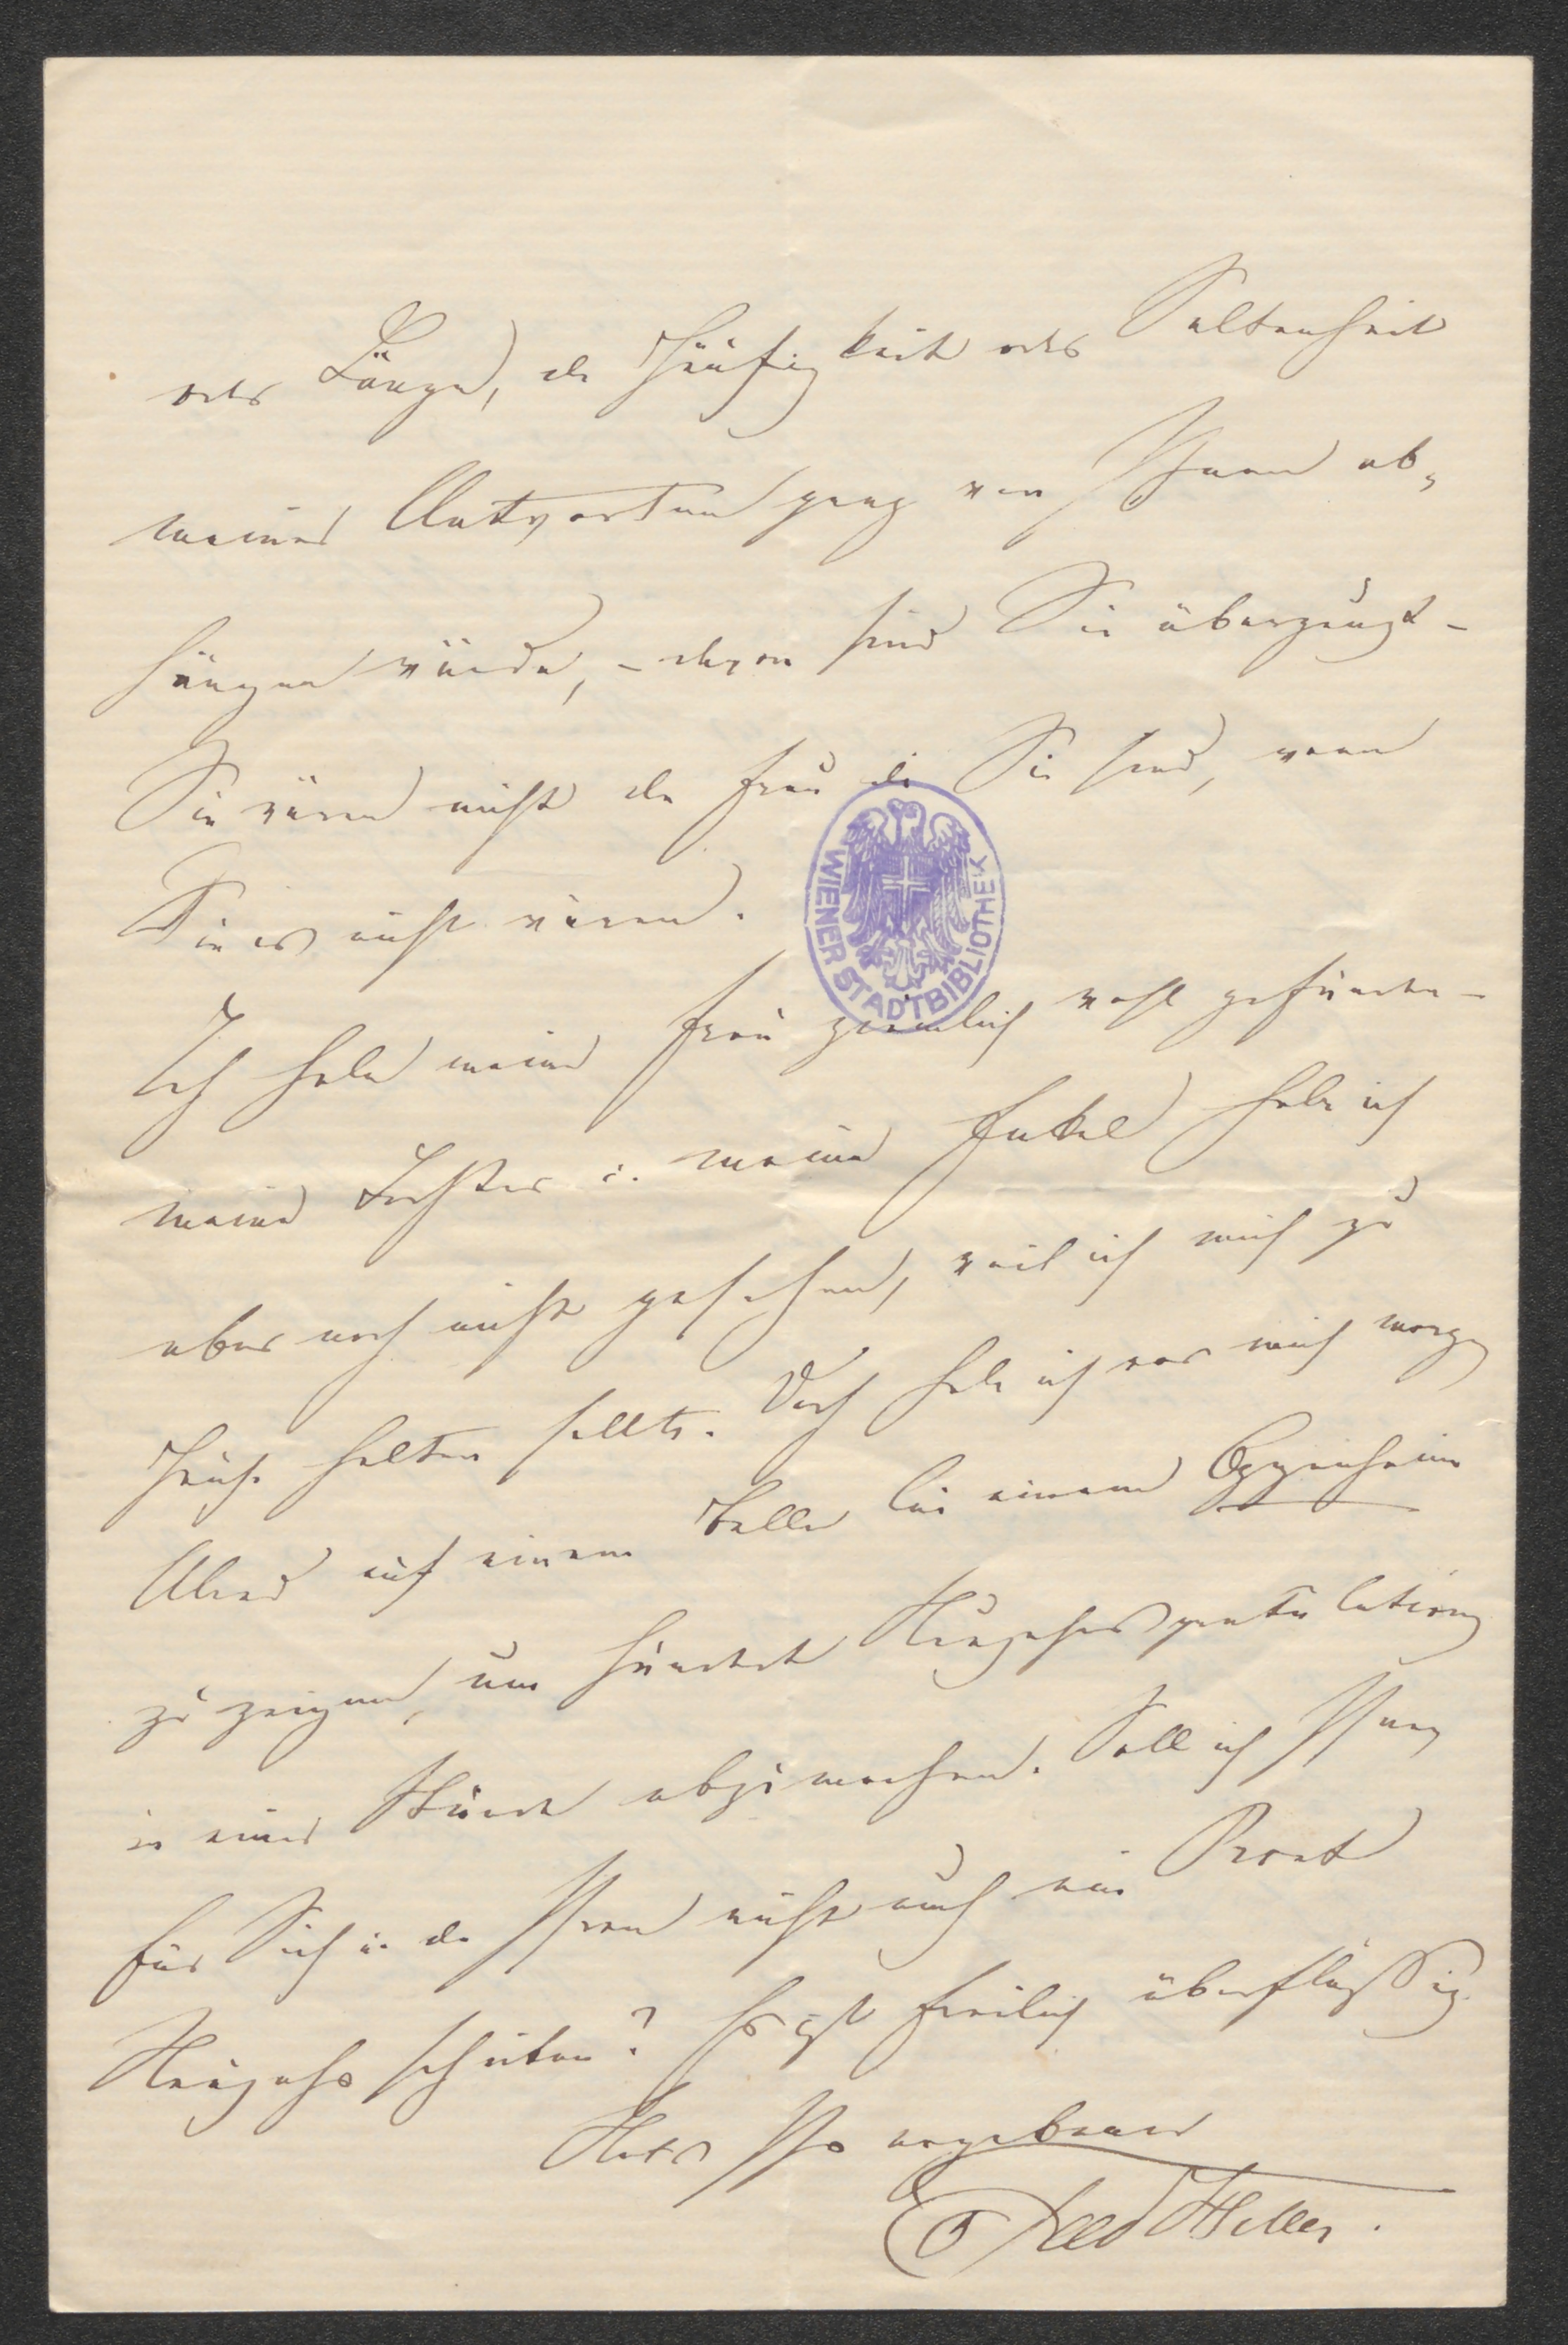 oder Länge, die Häufigkeit oder Seltenheit
meiner Antworten ganz von Ihnen ab-
hängen würde, – davon sind Sie überzeugt –
Sie wären nicht die Frau die Sie sind, wenn
Sie es nicht wären.
WIENER STADTBIBLIOTHEK
Ich habe meine Frau ziemlich wohl gefunden –
meine Tochter u. meine Enkel habe ich
aber noch nicht gesehen, weil ich mich zu
Hause halten sollte. Doch habe ich vor mich morgen
Abend auf einem Balle bei einem Oppenheim
zu zeigen, um hundert Neujahrsgratulationen
in einer Stunde abzumachen. Soll ich Ihnen
für Sich u. die Ihren nicht auch ein Prosit
Neujahr schicken? Es ist freilich überflüssig.
Stets Ihr ergebener